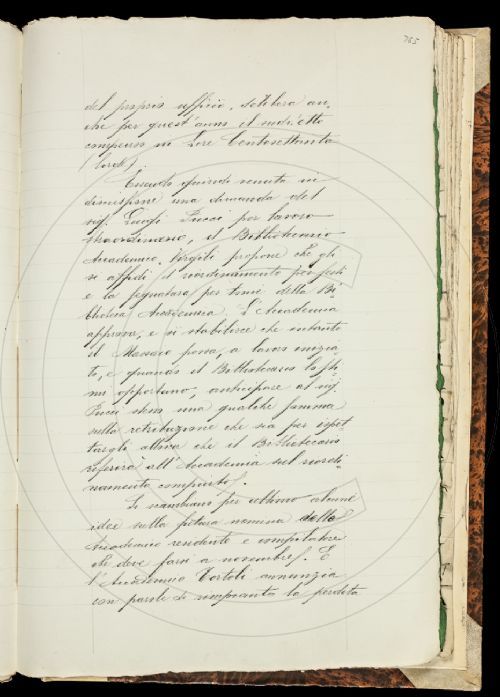 765
del proprio ufficio, delibera an-
che per quest'anno il sudetto
compenso in Lire Centosettanta
(lorde).
Essendo quindi venuta in
discussione una dimanda del
sig. Luigi Fucci per lavoro
straordinario, il Bibliotecario
Accademico Virgili propone che gli
si affidi il riordinamento per testi
e la segnatura per temi della Bi-
blioteca Accademica. L'Accademia
approva, e si stabilisce che intanto
il Massaio possa, a lavoro inizia-
to, e quando il Bibliotecario lo sti-
mi opportuno, anticipare al sig.
Fucci stesso una qualche somma
sulla retribuzione che sia per ispet-
targli allora che il Bibliotecario
referirà all'Accademia sul riordi-
namento compiuto.
Si scambiano per ultimo alcune
idee sulla futura nomina dello
Accademico residente e compilatore
che deve farsi a novembre. E
l'Accademico Tortoli annunzia
con parole di rimpianto la perdita